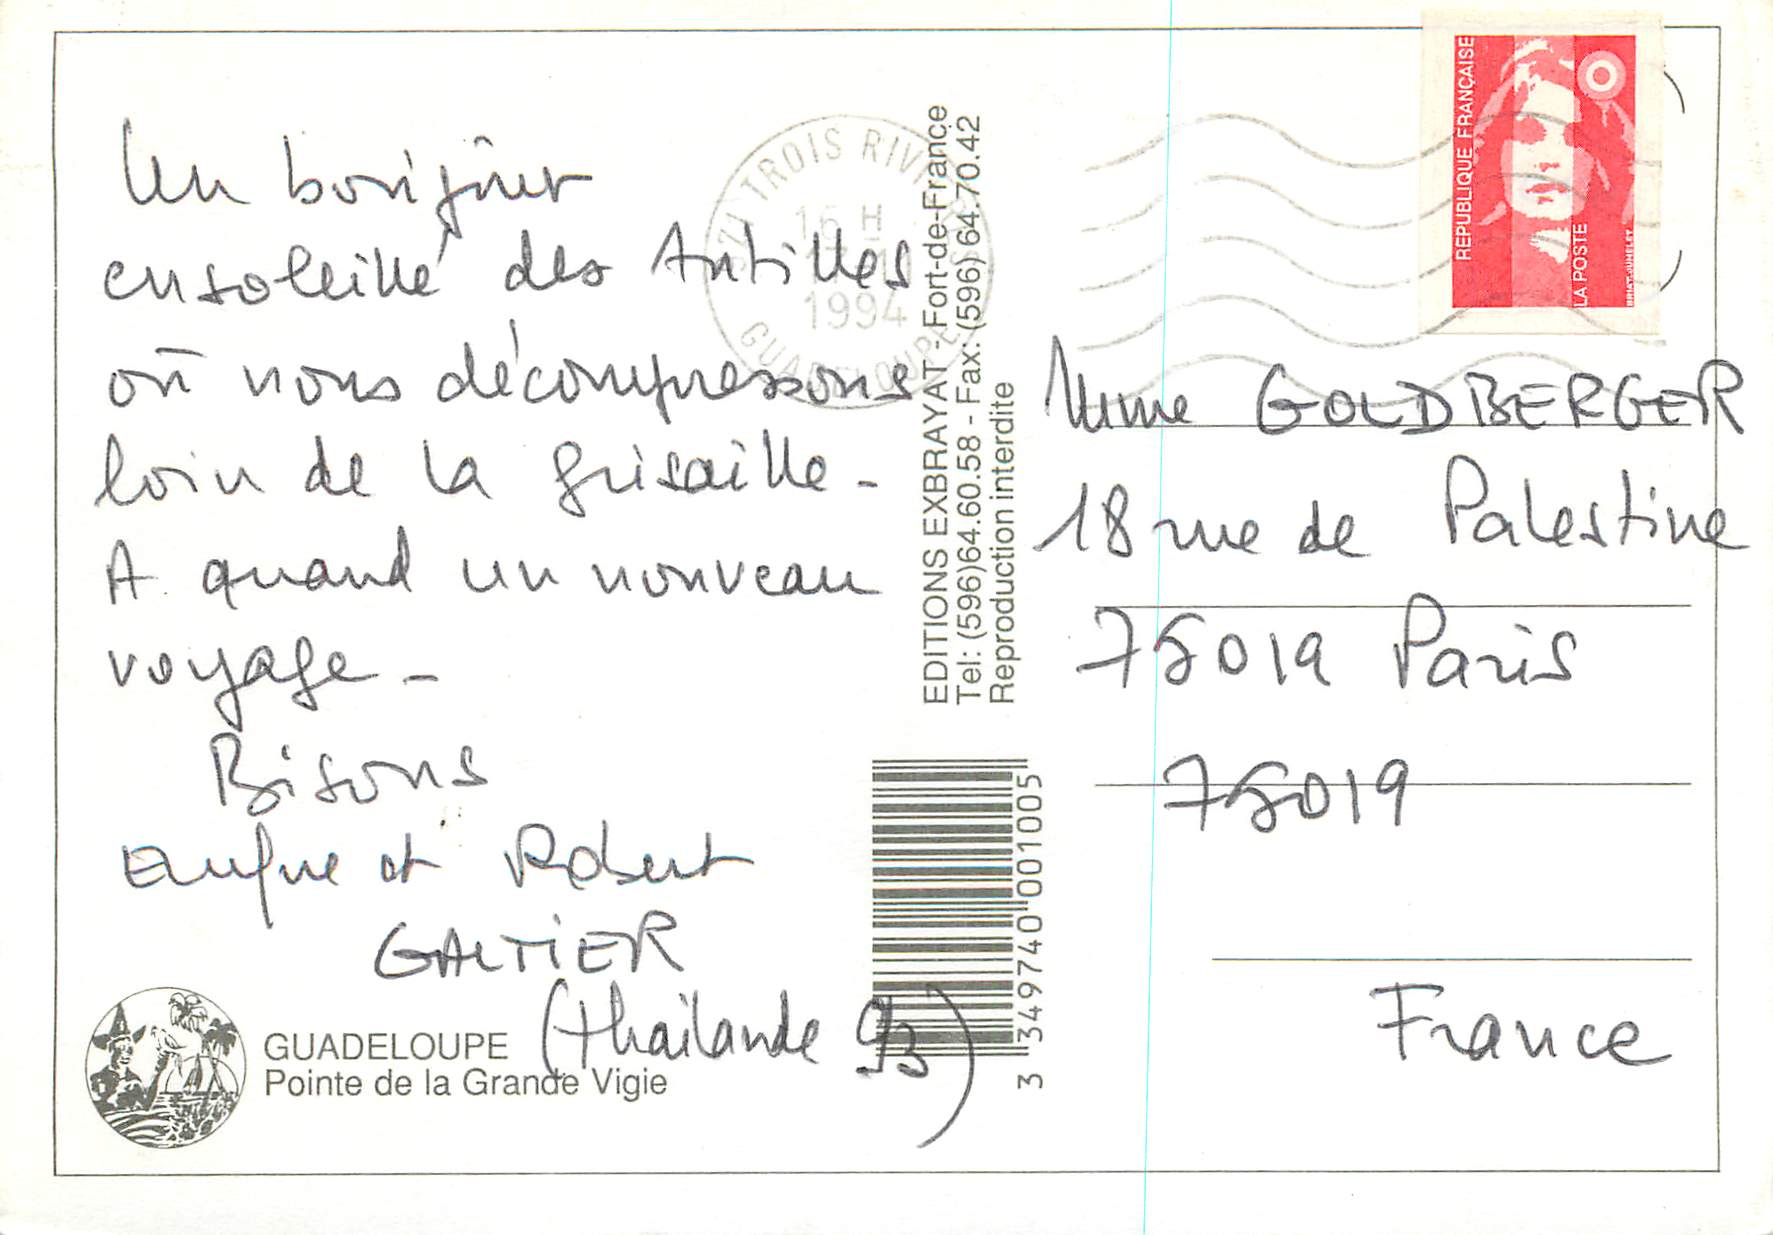 Un bonjour
ensoleillé des Antilles
où nous décompressons
loin de la grisaille -
A quand un nouveau
voyage -
Bisous
et Robert
GALTIER
(Thaïlande 93)
GUADELOUPE
Pointe de la Grande Vigie
TROIS RIVIERES
16 H
1994
GUADELOUPE
EDITIONS EXBRAYAT - Fort-de-France
Tel: (596)64.60.58 - Fax: (596) 64.70.42
Reproduction interdite
3 349740 001005
REPUBLIQUE FRANÇAISE
LA POSTE
BRIAT-JUMELET
Mme GOLDBERGER
18 rue de Palestine
75019 Paris
75019
France